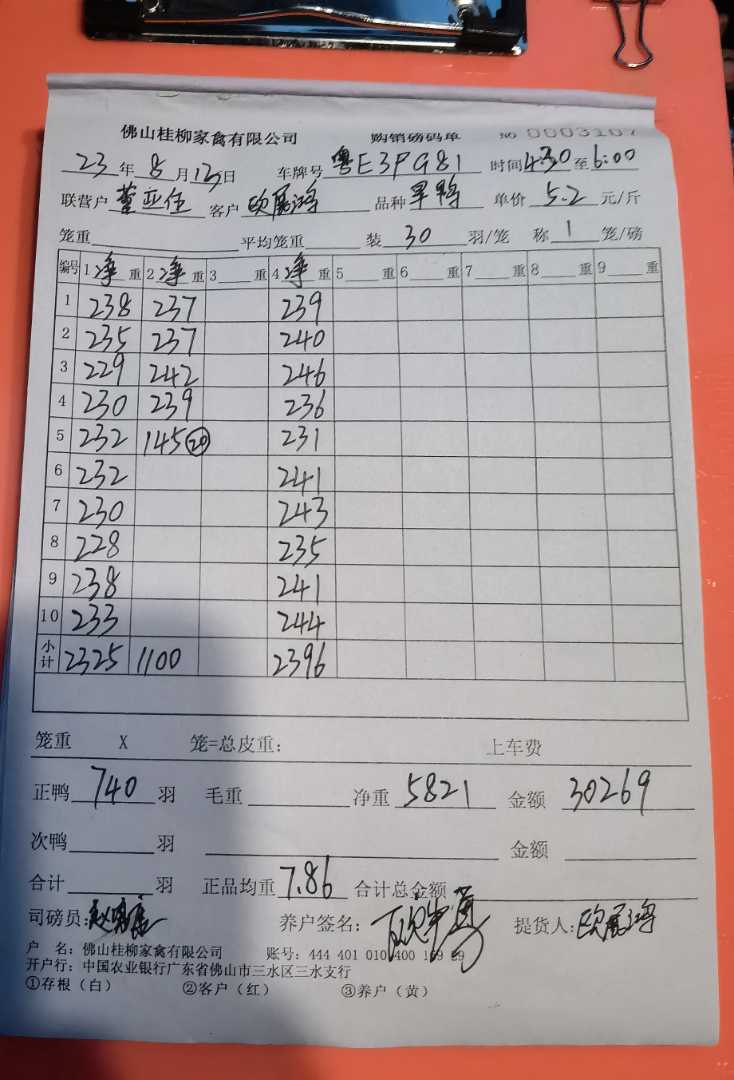 佛山桂柳家禽有限公司 购销磅码单 № 0003107
23 年 8 月 13 日 车牌号 粤E3PG81 时间 4:30 至 6:00
联营户 客户 欧展鸿 品种 旱鸭 单价 5.2 元/斤
笼重 平均笼重 装 30 羽/笼 称 1 笼/磅
编号 1 净 重 2 净 重 3 重 4 净 重 5 重 6 重 7 重 8 重 9 重
1 238 237 239
2 235 237 240
3 229 242 246
4 230 239 236
5 232 145 20 231
6 232 241
7 230 243
8 228 235
9 238 241
10 233 244
小计 2325 1100 2396
笼重 X 笼=总皮重: 上车费
正鸭 740 羽 毛重 净重 5821 金额 30269
次鸭 羽 金额
合计 羽 正品均重 7.86 合计总金额
司磅员: 养户签名: 提货人: 欧展鸿
户 名: 佛山桂柳家禽有限公司 账号: 444 401 010 400
开户行: 中国农业银行广东省佛山市三水区三水支行
①存根（白） ②客户（红） ③养户（黄）